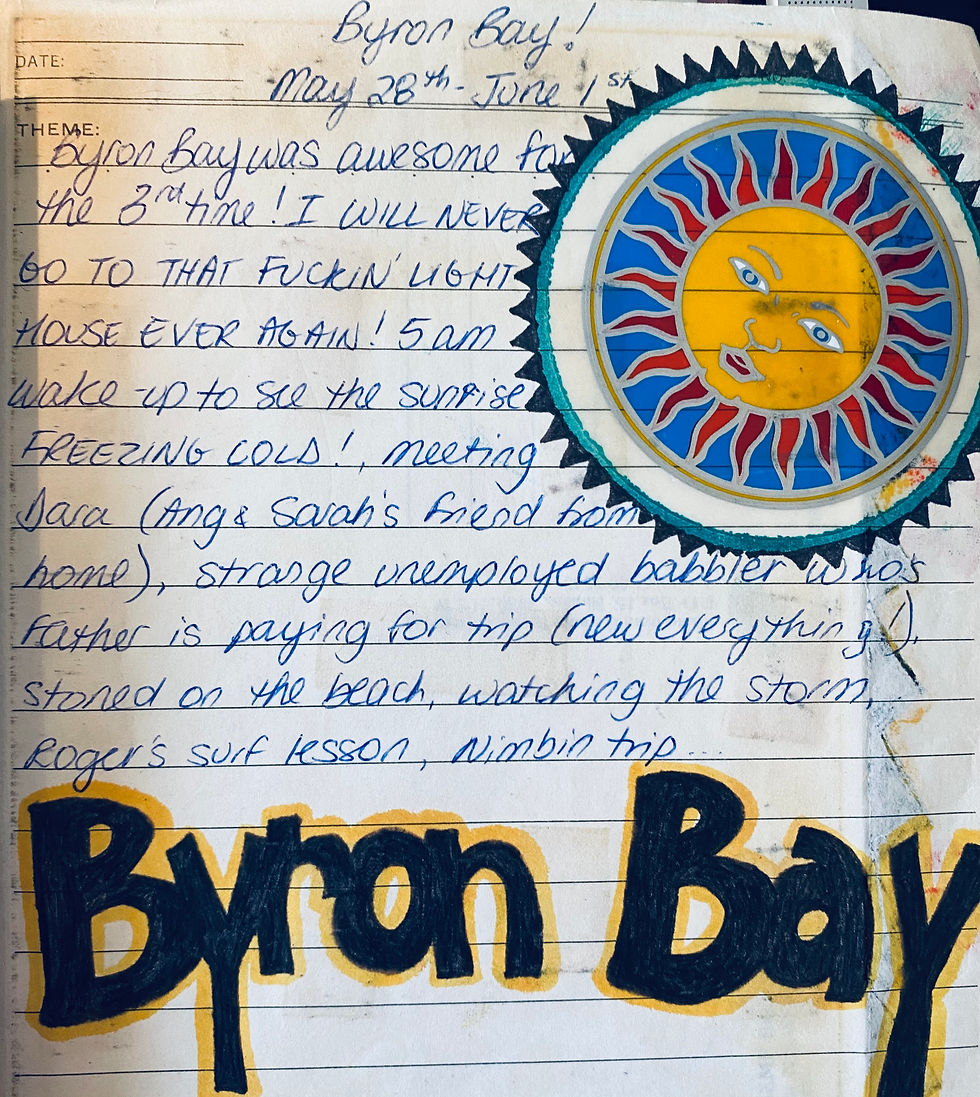 Byron Bay!
DATE:
May 28th - June 1st
THEME:
Byron Bay was awesome for
the 3rd time! I WILL NEVER
GO TO THAT FUCKIN' LIGHT
HOUSE EVER AGAIN! 5am
wake-up to see the sunrise
FREEZING COLD!, meeting
Dara (Ang & Sarah's friend from
home), strange unemployed babbler who's
father is paying for trip (new everything!),
stoned on the beach, watching the storm,
Roger's surf lesson, Nimbin trip...
Byron Bay